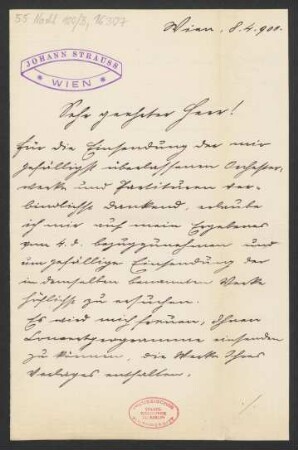 55 Nachl 100/B,
Wien, 8.4.900.
JOHANN STRAUSS
WIEN
Sehr geehrter Herr!
Für die Einsendung der mir
gefälligst überlassenen Orchester-
werke und Partituren ver-
bindlichst dankend, erlaube
ich mir auf mein Ergebenes
vom 4. d. bezugzunehmen und
um gefällige Einsendung der
in demselben benannten Werke
höflichst zu ersuchen.
Es wird mich freuen, Ihnen
Concertprogramme einsenden
zu können, die Werke Ihres
Verlages enthalten.